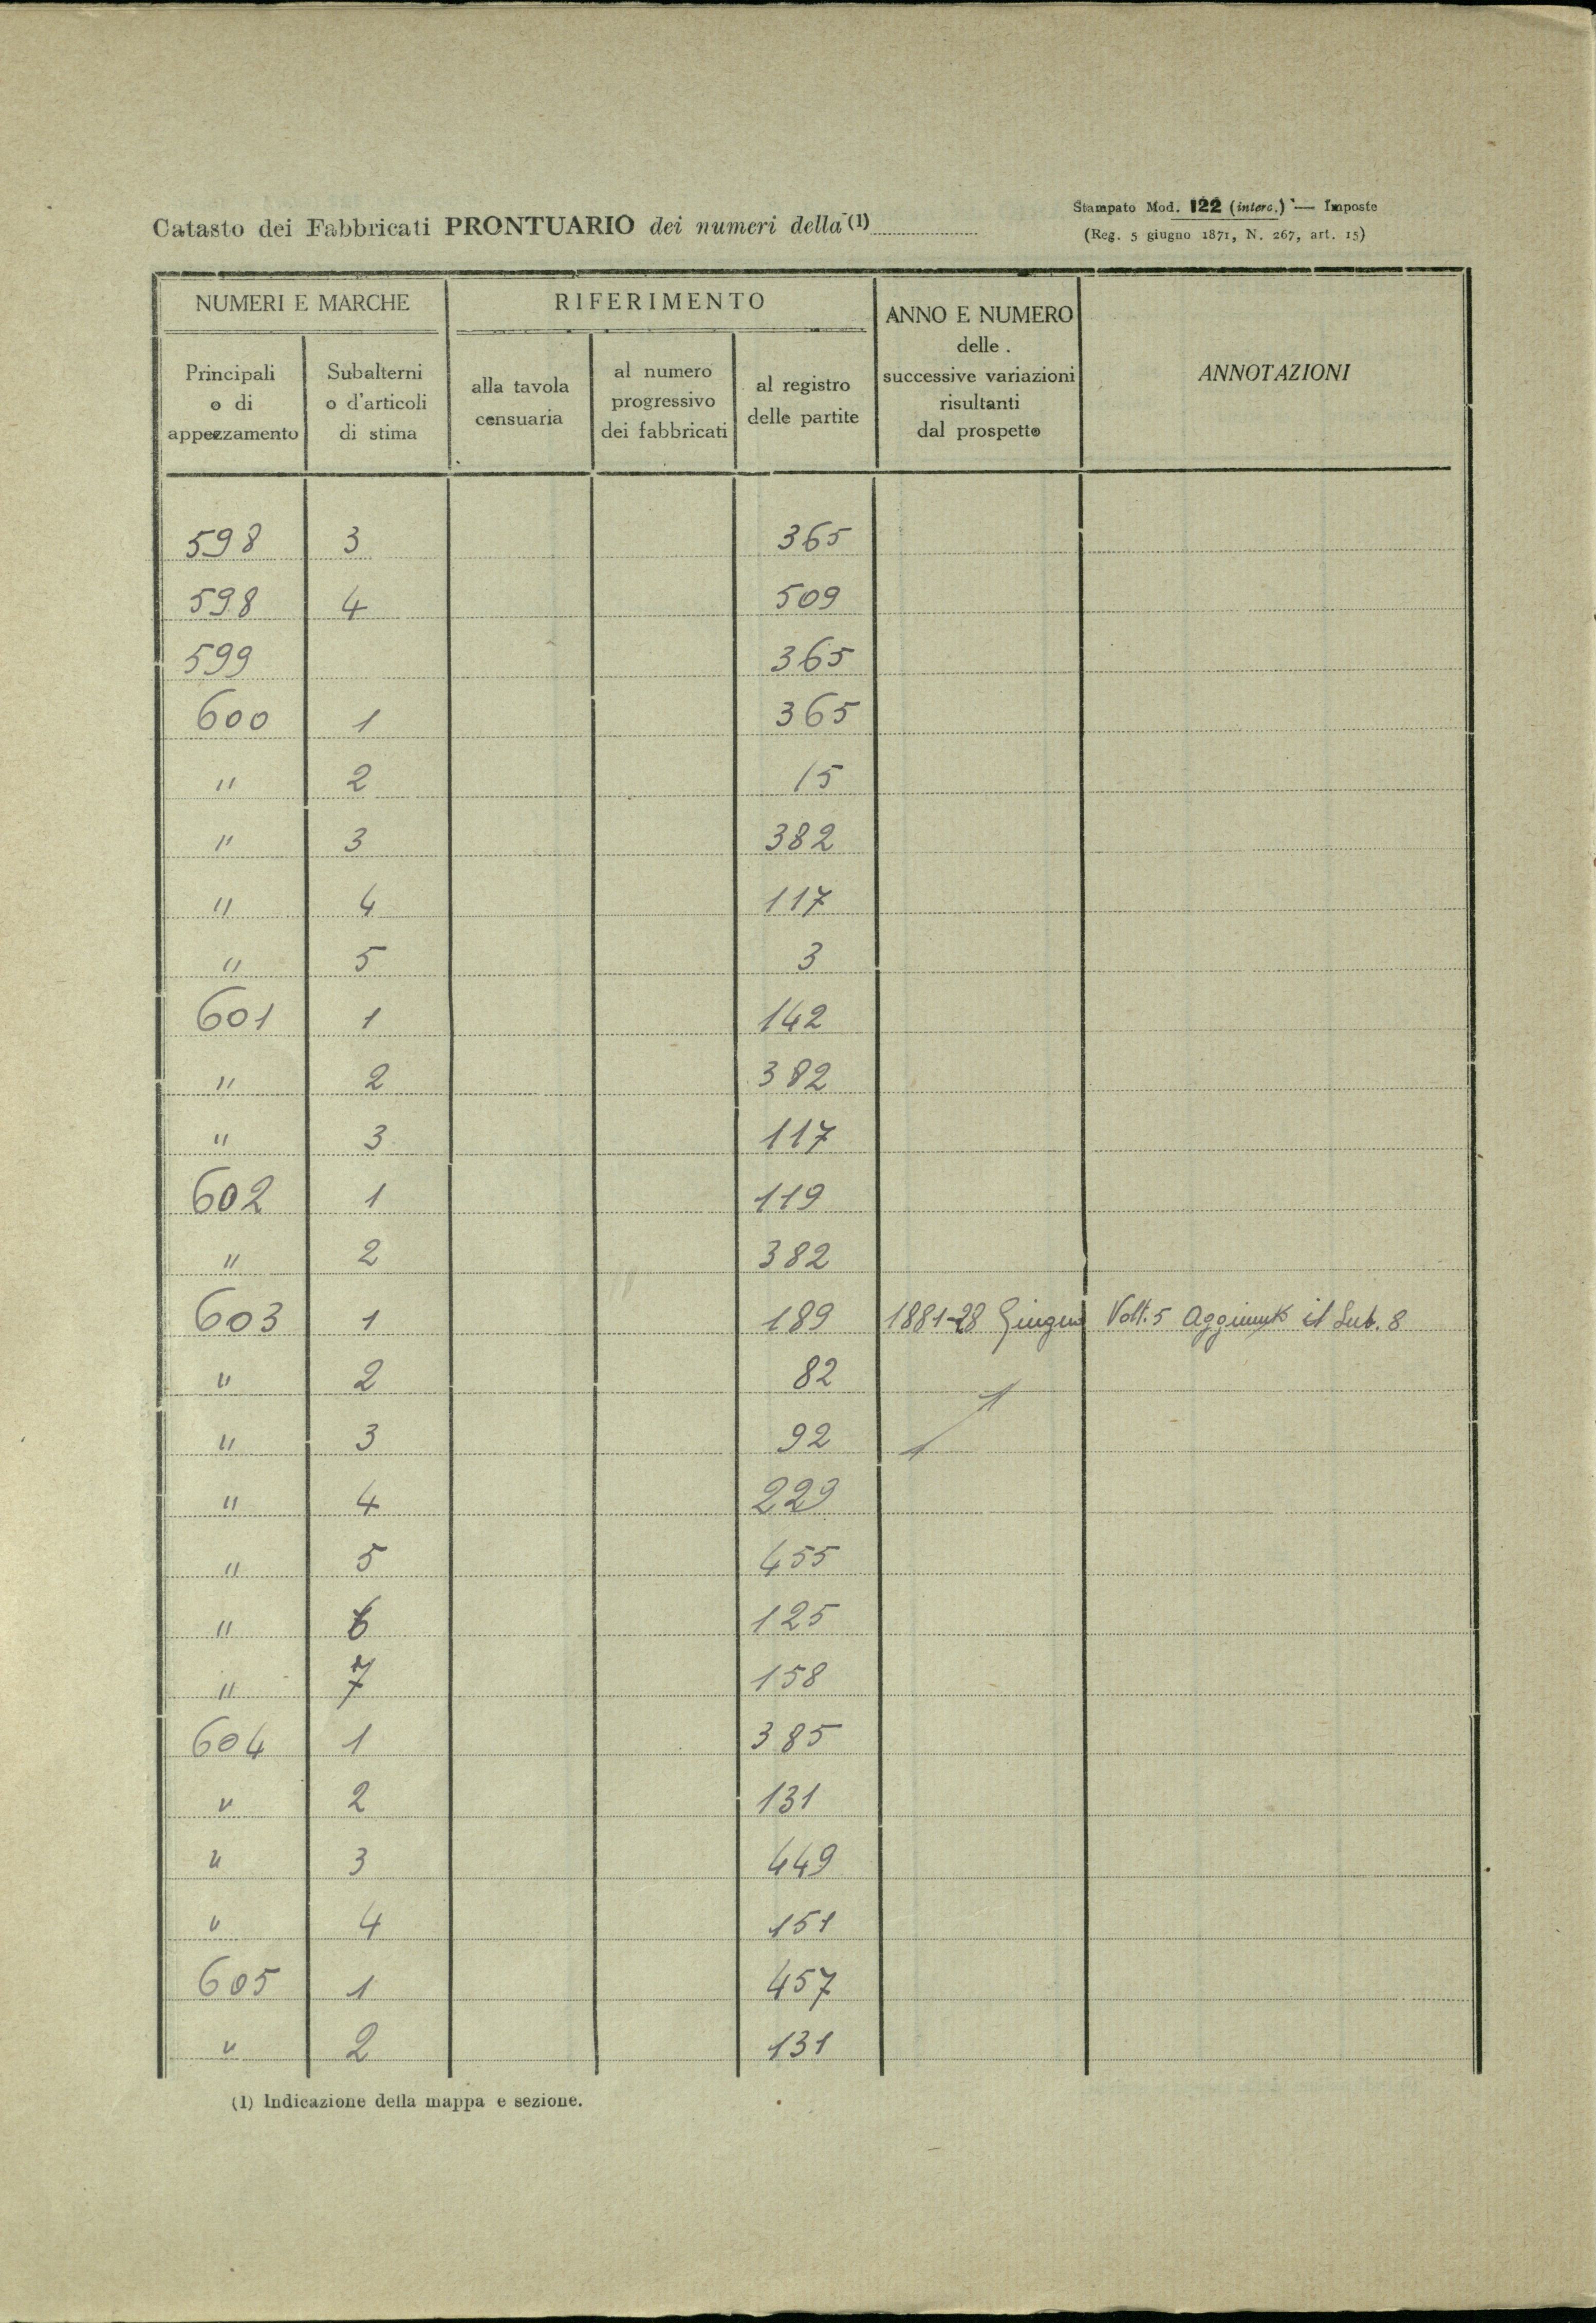 Catasto dei Fabbricati PRONTUARIO dei numeri della (1)
Stampato Mod. 122 (interc.) — Imposte
(Reg. 5 giugno 1871, N. 267, art. 15)
NUMERI E MARCHE
RIFERIMENTO
ANNO E NUMERO
delle
successive variazioni
risultanti
dal prospetto
ANNOTAZIONI
Principali
o di
appezzamento
Subalterni
o d'articoli
di stima
alla tavola
censuaria
al numero
progressivo
dei fabbricati
al registro
delle partite
598 3 365
598 4 509
599 365
600 1 365
" 2 15
" 3 382
" 4 117
" 5 3
601 1 142
" 2 382
" 3 117
602 1 119
" 2 382
603 1 189 1881-28 Giugno Volt. 5 il Sub. 8
" 2 82
" 3 92
" 4 229
" 5 455
" 6 125
" 7 158
604 1 385
" 2 131
" 3 449
" 4 151
605 1 457
" 2 131
(1) Indicazione della mappa e sezione.